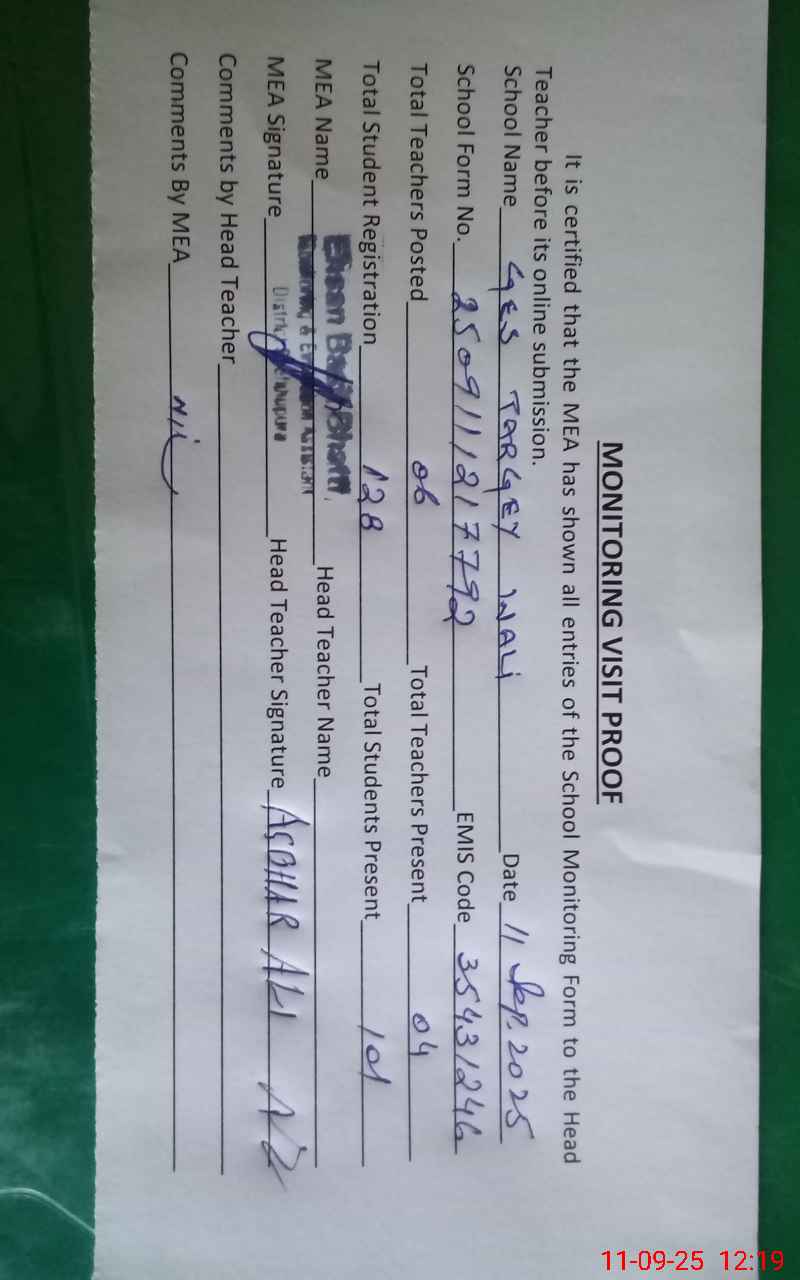 MONITORING VISIT PROOF
It is certified that the MEA has shown all entries of the School Monitoring Form to the Head
Teacher before its online submission.
School Name GES TARGEY WALI Date 11 Sep. 2025
School Form No. 2509111217792 EMIS Code 35431246
Total Teachers Posted 06 Total Teachers Present 04
Total Student Registration 128 Total Students Present 101
MEA Name Head Teacher Name
Bhatti
MEA Signature Head Teacher Signature ASGHAR ALI
Comments by Head Teacher
Comments By MEA Nil
11-09-25 12:19